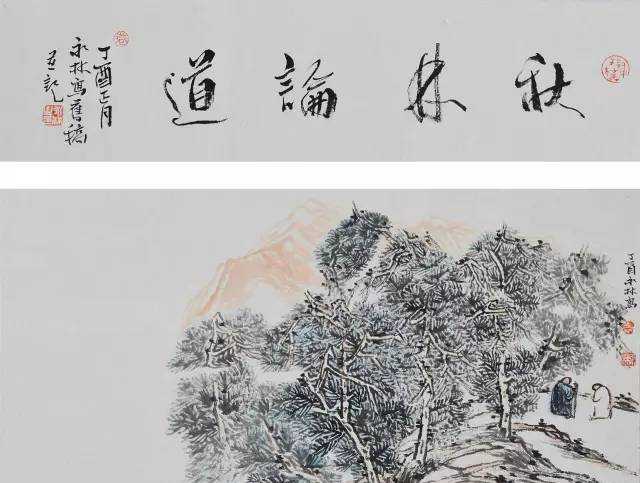 秋林論道
丁酉正月
永林寫舊稿
並記
丁酉永林寫